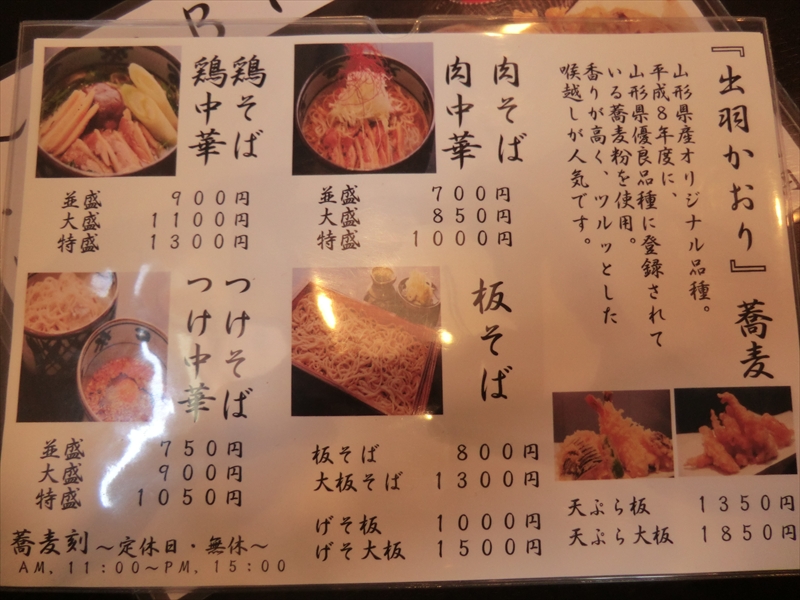 『出羽かおり』蕎麦
山形県産オリジナル品種。
平成８年度に、
山形県優良品種に登録されて
いる蕎麦粉を使用。
香りが高く、ツルッとした
喉越しが人気です。
肉そば
肉中華
並盛 ７００円
大盛 ８５０円
特盛 １０００円
鶏そば
鶏中華
並盛 ９００円
大盛 １１００円
特盛 １３００円
板そば
板そば ８００円
大板そば １３００円
げそ板 １０００円
げそ大板 １５００円
つけそば
つけ中華
並盛 ７５０円
大盛 ９００円
特盛 １０５０円
天ぷら板 １３５０円
天ぷら大板 １８５０円
蕎麦刻～定休日・無休～
AM. 11:00～PM. 15:00